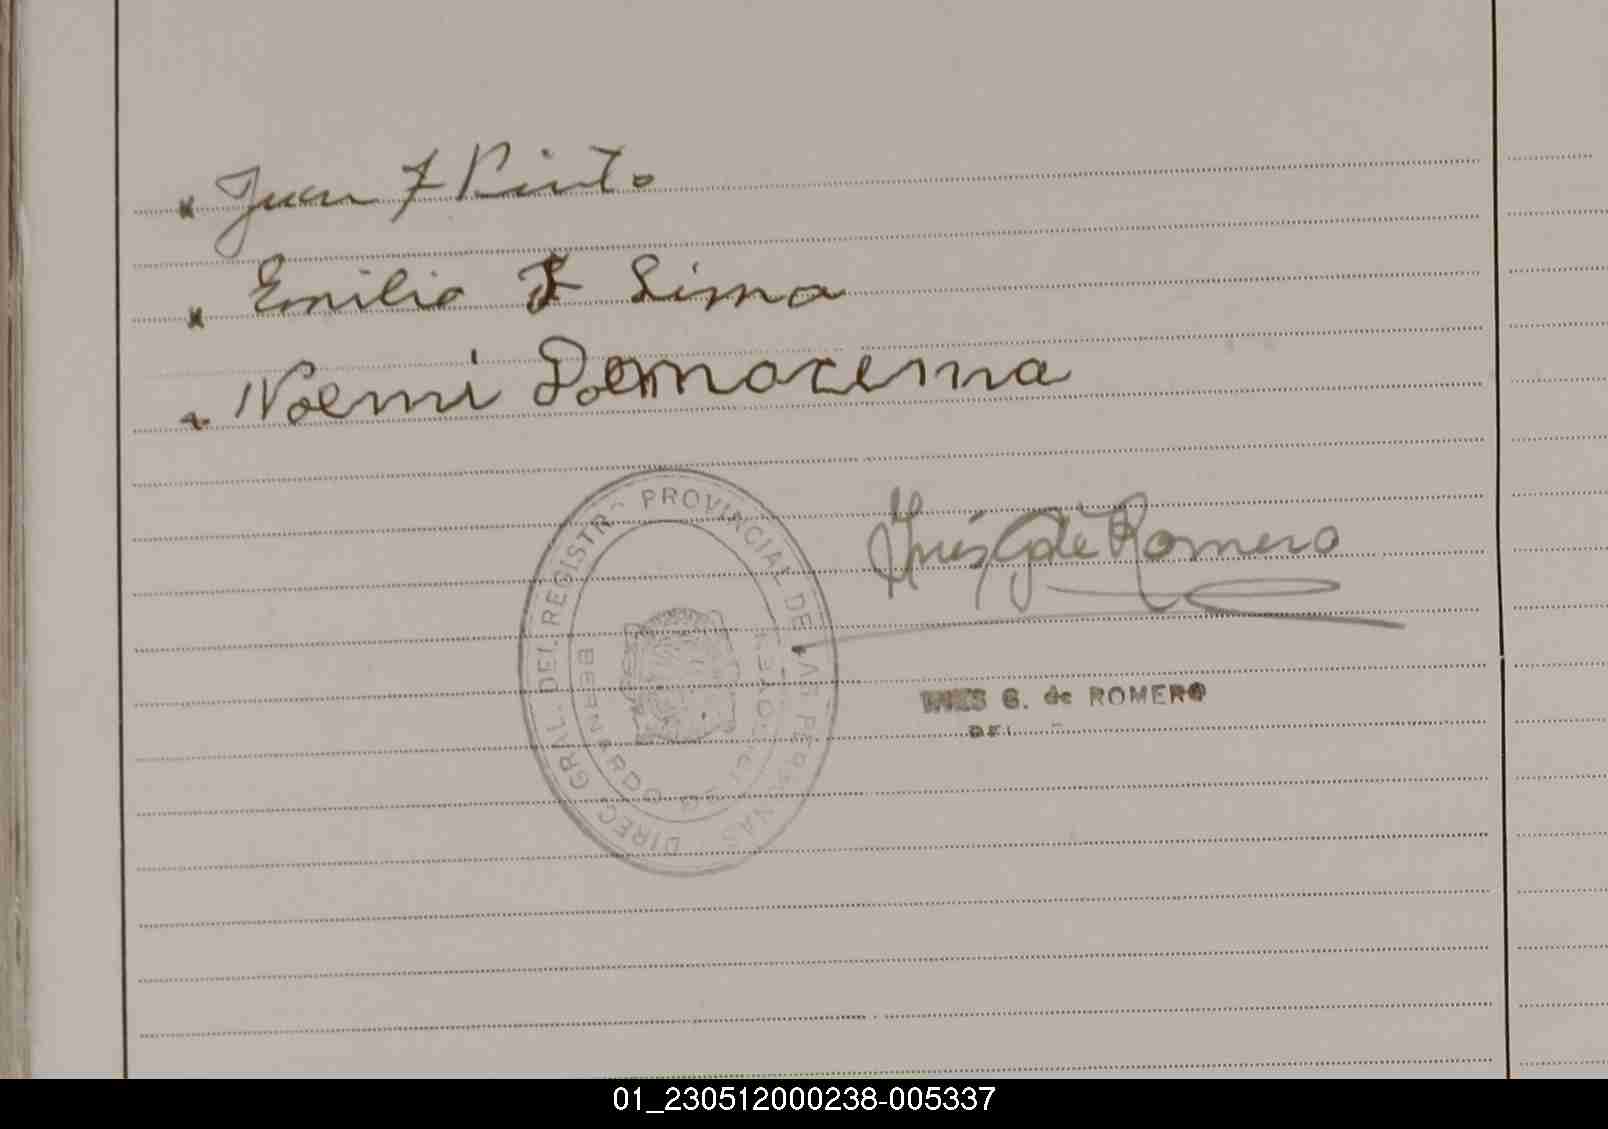 x Juan F Pinto
x Emilio F Lima
x Noemi
Inés G de Romero
DIREC. GRAL. DEL REGISTRO PROVINCIAL DE LAS PERSONAS
BERNARDO DE
INES G. de ROMERO
DEL
01_230512000238-005337